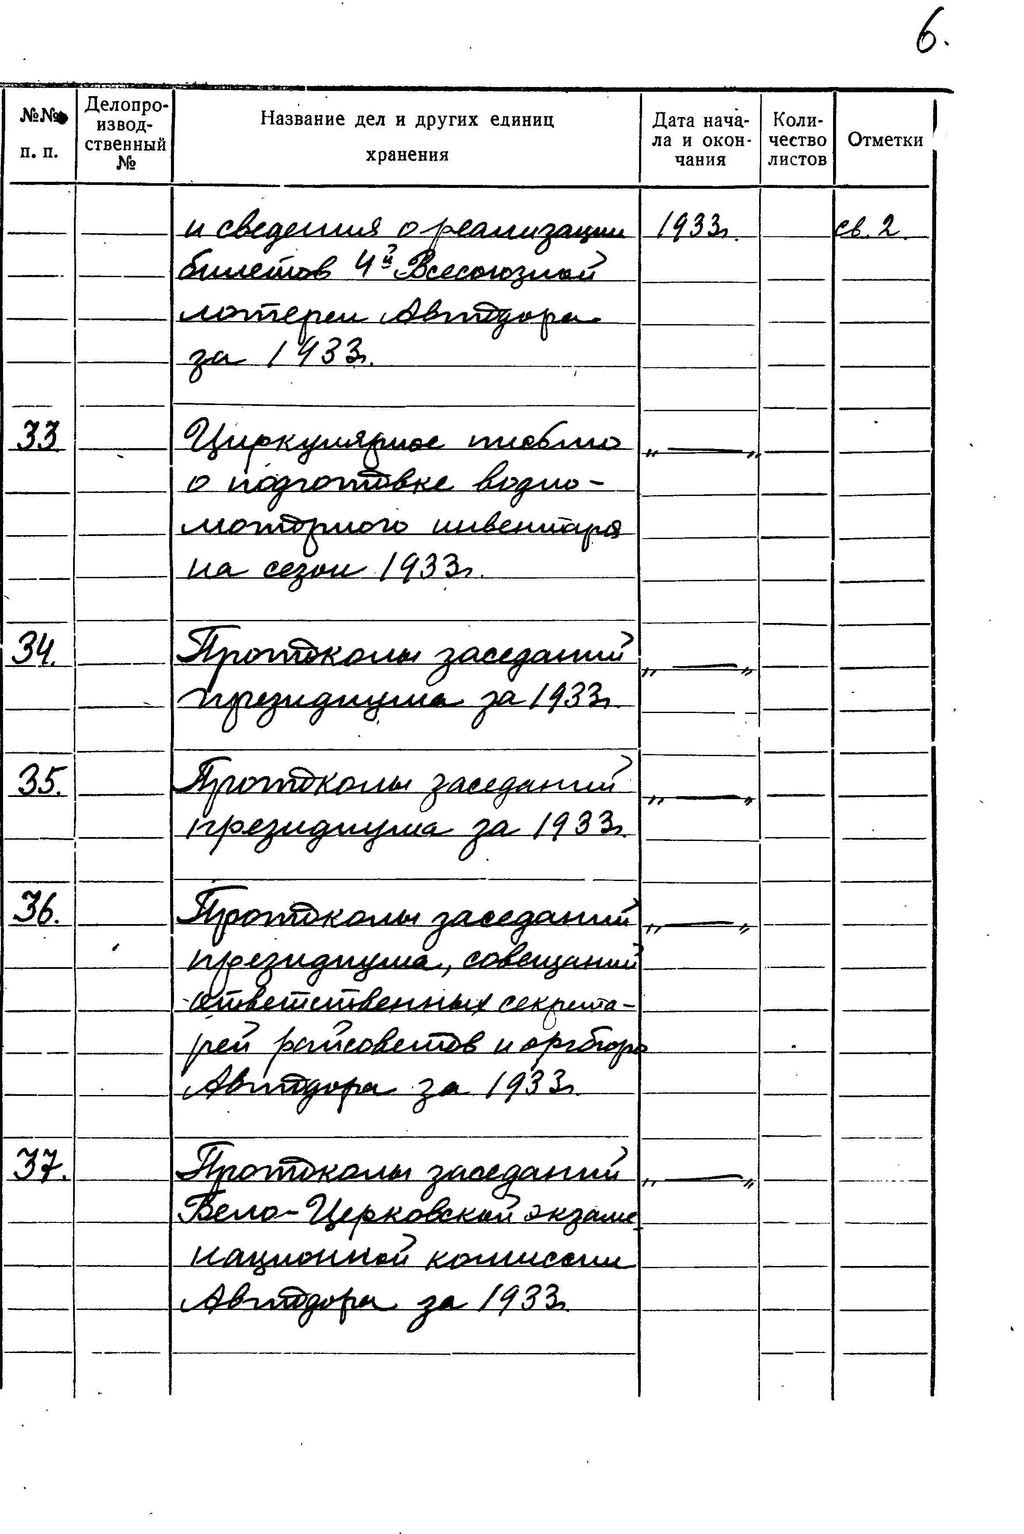 6.
№№ п. п.
Делопро-
извод-
ственный
№
Название дел и других единиц
хранения
Дата нача-
ла и окон-
чания
Коли-
чество
листов
Отметки
и сведения о реализации 1933г. св. 2.
билетов 4й Всесоюзной
лотереи Автодора
за 1933г.
33. Циркулярное письмо „ — „
о подготовке водно-
моторного инвентаря
на сезон 1933г.
34. Протоколы заседаний „ — „
президиума за 1933г.
35. Протоколы заседаний „ — „
президиума за 1933г.
36. Протоколы заседаний „ — „
президиума, совещаний
ответственных секрета-
рей райсоветов и оргбюро
Автодора за 1933г.
37. Протоколы заседаний „ — „
Бело-Церковской экзаме-
национной комиссии
Автодора за 1933г.